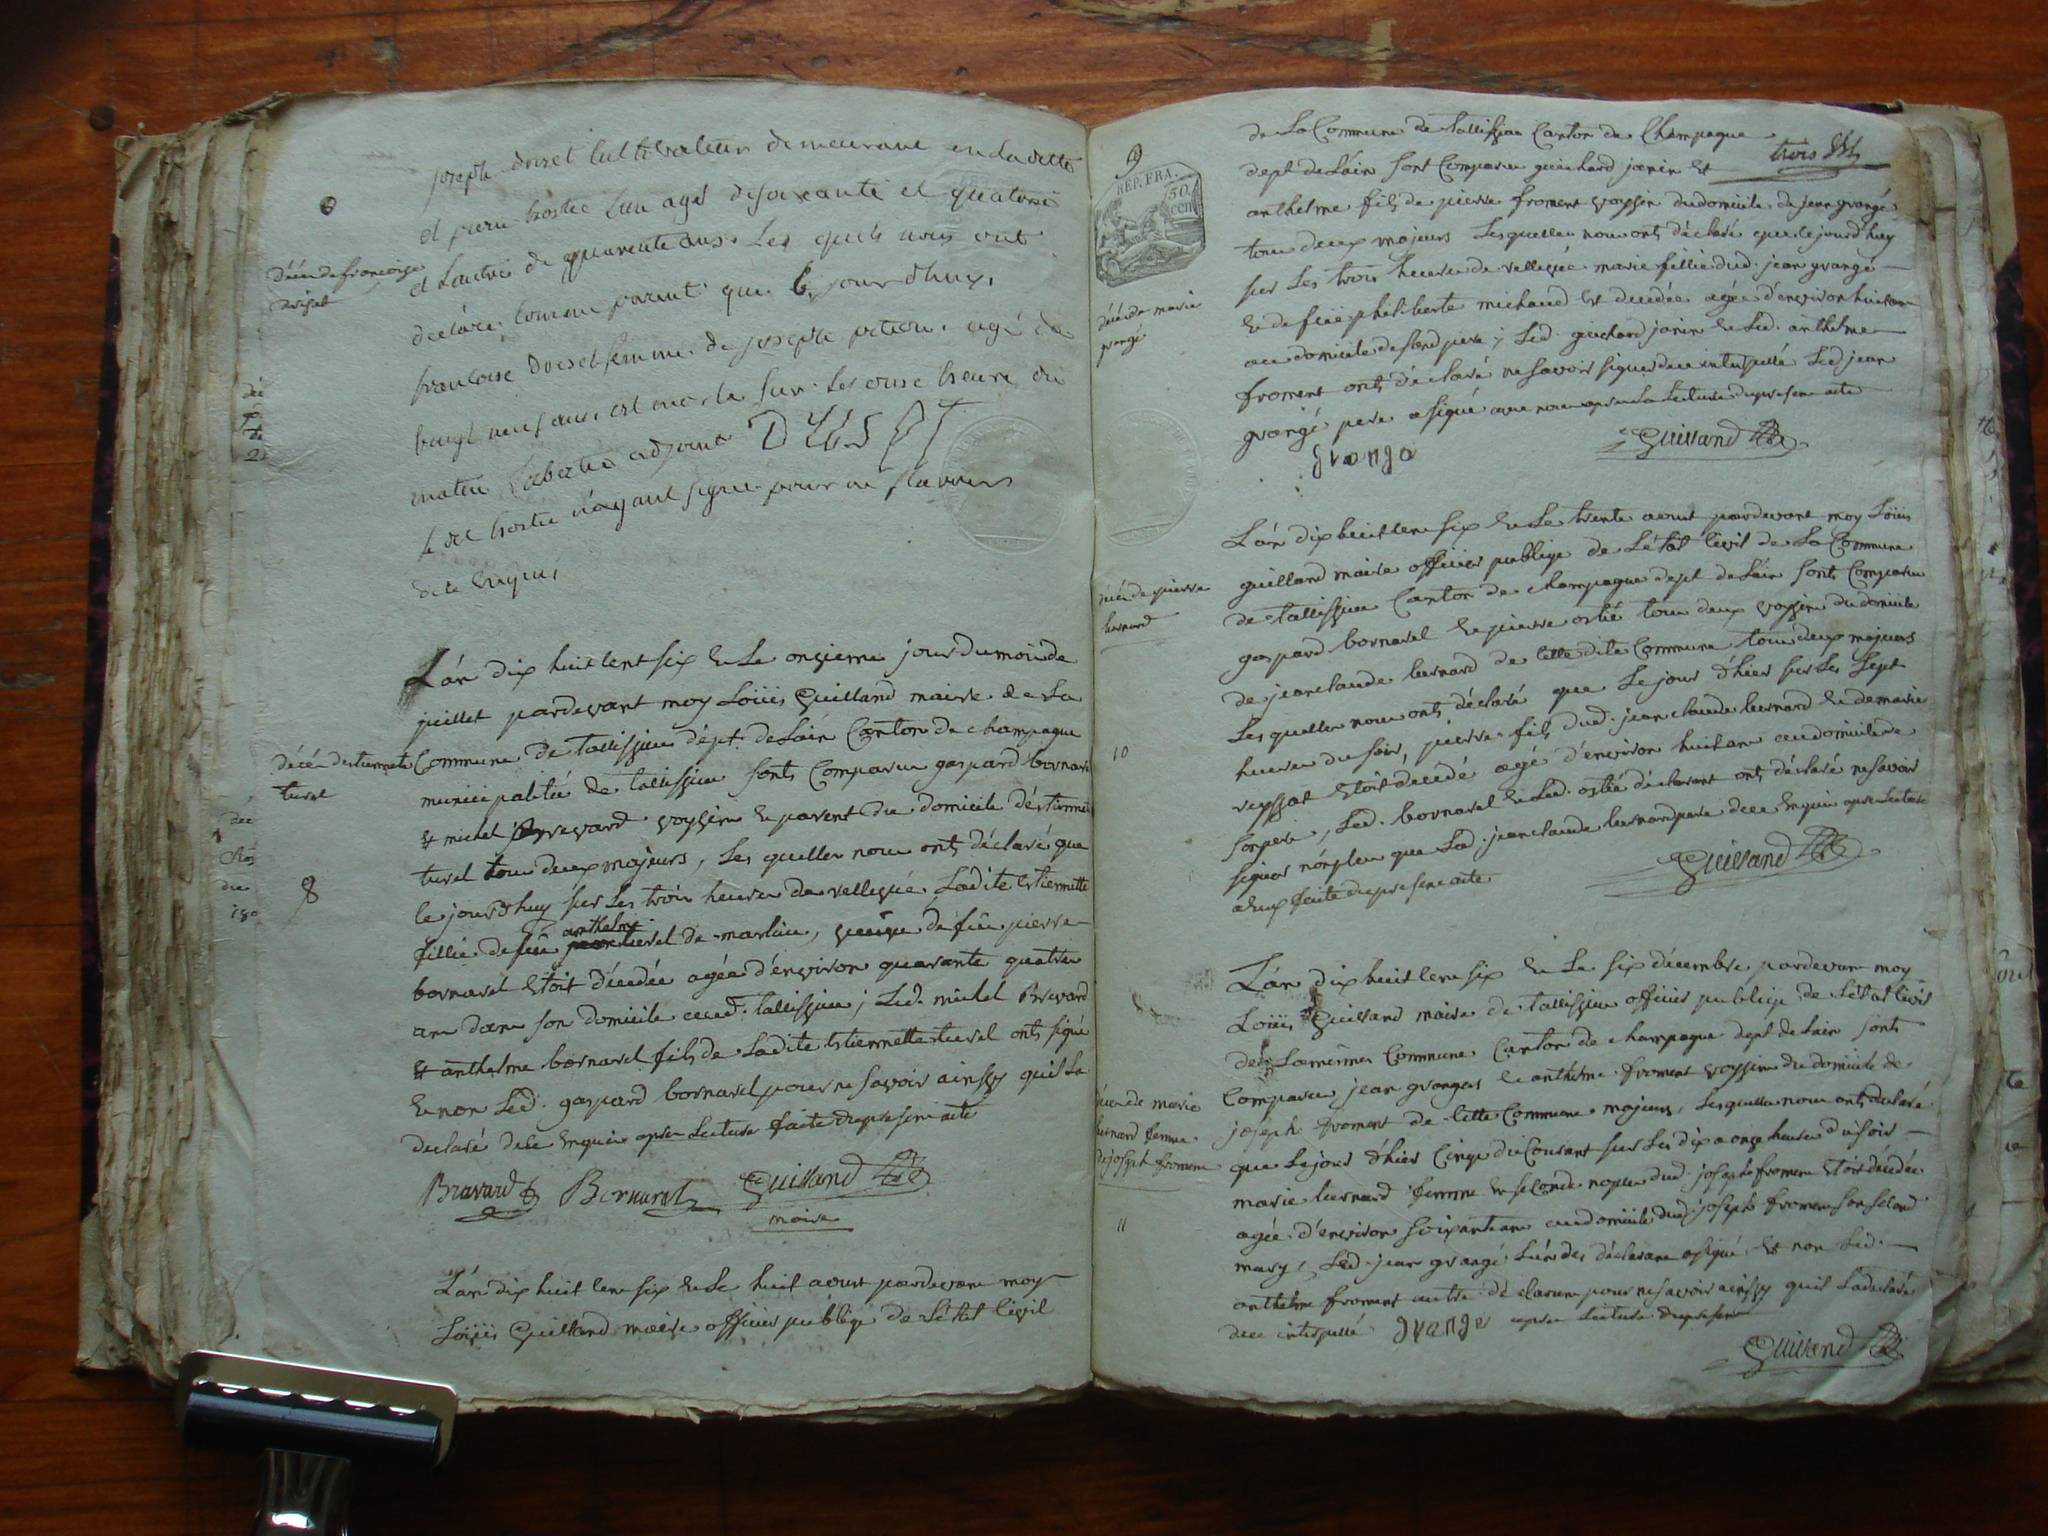 joseph doiset cultivateur demeurant
et pierre hostie l'un agé de soixante et quatorze
et l'autre de quarente ans. Les quels nous ont
déclaré comme parent que le jourdhuy,
francoise doiset femme de joseph agé de
vingt neuf ans est morte sur les onze heure du
matin adjoint
le dit hostie n'ayant signe pour ne
de ce enquis
décé de francoise
doiset
L'án dix huit cent six & le onzieme jour du moi de
juillet pardevant moy Loüis Guilland maire de La
Commune de Tallissieu dépt. de Láin Canton de champagne
municipalité de tallissieu sonts Comparu gaspard bornarel
& michel bravard voyzins & parent du domicile déstiennette
turel tou deux majeurs, Les quelles nou onts déclaré que
le jourdhuy sur Les trois heure de rellegée Ladite Estiennette
fillie de feüe anthelme turel de marlieu, de feu pierre
bornarel Etoit décedée agée d'environ quarante quatre
an dans son domicile aud. tallissieu ; Led. michel Bravard
& anthelme bornarel fils de Ladite Estiennette turel onts signé
& non Led. gaspard bornarel pour ne savoir ainssy quil La
declaré de ce enquis apres Lecture faite du present acte
Bravard Bornarel Guilland
maire
décéz destiennette
turel
8
L'án dix huit cent six & le huit aoust pardevant moy
Loüis Guilland maire officier publiqe de Létat Civil
9
REP. FRA.
50
cen
de La Commune de tallissieu Canton de Champagne
dept de Láin sont Comparu guichard janin &
anthelme fils de pierre froment voyzin du domicile de jean grangé
tou deux majeurs Lesquelles nou onts déclaré que le jourdhuy
sur Les trois heure de rellegée marie fillie dud. jean grangé
& de feüe philiberte michaud est décedée agée d'environ huit an
au domicile de sond pere ; Led. guichard janin & Led. anthelme
froment onts déclaré ne savoir signer de ce interpellé Led jean
grangé pere a signé avec nou apres La Lecture du present acte
grange Guilland
décé de marie
grangé
L'án dix huit cent six & Le trente aout pardevant moy Loüis
guilland maire officier publiqe de Létat Civil de La Commune
de tallissieu Canton de champagne dept de Láin sonts Comparu
gaspard bornarel & pierre ostié tou deux voyzins du domicile
de jean claude bernard de cette dite Commune tou deux majeurs
Les quelles nou onts déclaré que Le jour d'hier sur Les sept
heure du soir, pierre fils dud. jean claude bernard & de marie
reyssat Etoit décedé agé d'environ huit an au domicile de
son pere, Led. bornarel & Led. ostié déclarant onts déclaré ne savoir
signer nonplu que Led. jean claude bernard pere de ce enquis apres Lecture
a eux faite du present acte
Guilland
décé de pierre
bernard
10
L'án dix huit cent six & Le six décembre pardevant moy
Loüis Guilland maire de tallissieu officier publiqe de Létat Civil
de La même Commune Canton de champagne dept de Lain sonts
Comparu jean grangé & anthelme froment voyzins du domicile de
joseph froment de Cette Commune majeurs, Lesquelles nou onts déclaré
que Le jour d'hier Cinqe du Courant sur Les dix a onze heure du soir
marie bernard femme en seconde nopce dud. joseph froment Etoit décedée
agée d'environ soixante an au domicile dud. joseph froment son second
mary, Led. jean grangé Lún des déclarant a signé & non Led.
anthelme froment autre déclarant pour ne savoir ainssy quil La déclaré
de ce interpellé grange apres Lecture du present
Guilland
décé de marie
bernard femme
de joseph froment
11